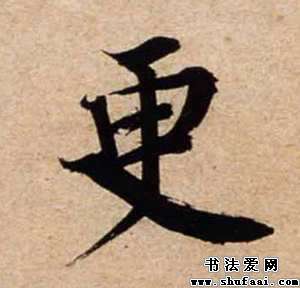 更
书法爱网
www.shufaai.com